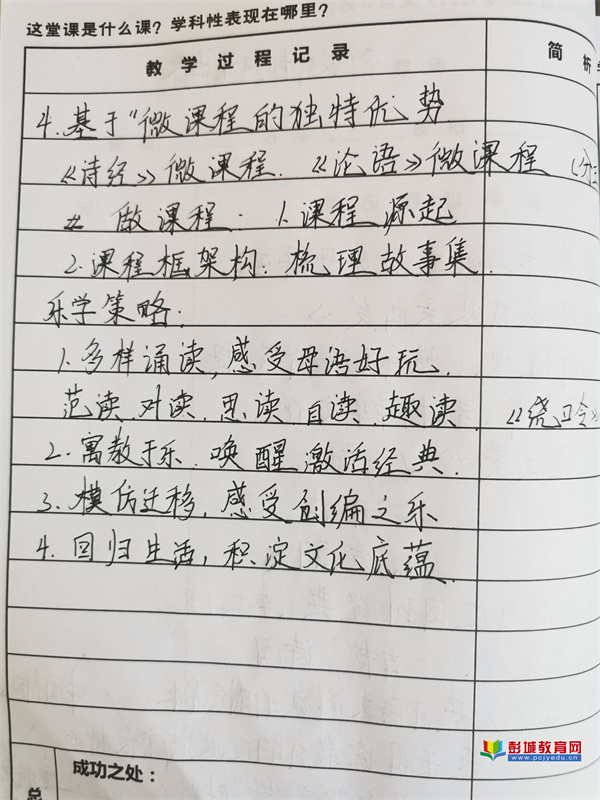 这堂课是什么课？学科性表现在哪里？
教学过程记录 简析
4.基于“微课程的独特优势
《诗经》微课程.《论语》微课程 (分
做课程：1.课程源起
2.课程框架构：梳理故事集.
乐学策略：
1.多样诵读,感受母语好玩.
范读.对读.思读.自读.趣读.《绕口令》
2.寓教于乐.唤醒激活经典.
3.模仿迁移,感受创编之乐
4.回归生活,积淀文化底蕴.
成功之处：
总
彭城教育网
www.pcjyedu.cn